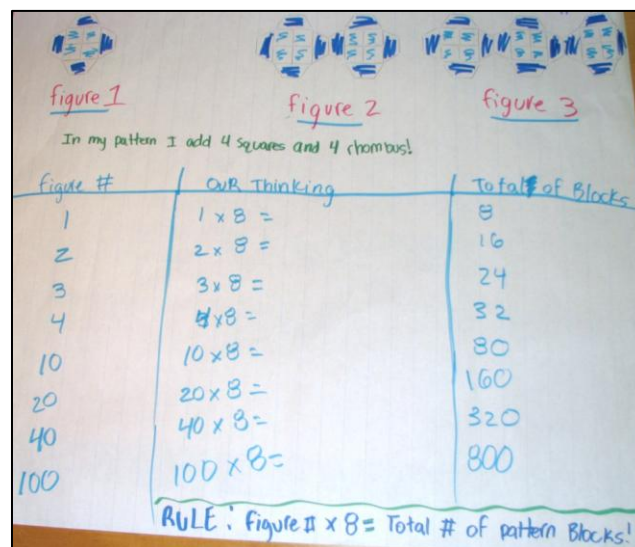 figure 1 figure 2 figure 3
In my pattern I add 4 squares and 4 rhombus!
figure # OUR Thinking Total # of Blocks
1 1 x 8 = 8
2 2 x 8 = 16
3 3 x 8 = 24
4 4 x 8 = 32
10 10 x 8 = 80
20 20 x 8 = 160
40 40 x 8 = 320
100 100 x 8 = 800
RULE: figure # x 8 = Total # of pattern Blocks!